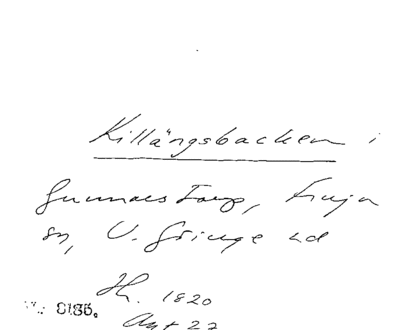 Killängsbacken i
Gunnarstorp, Fruja
sn, V. Göinge hd
Hr. 1820
Akt 22
8186.